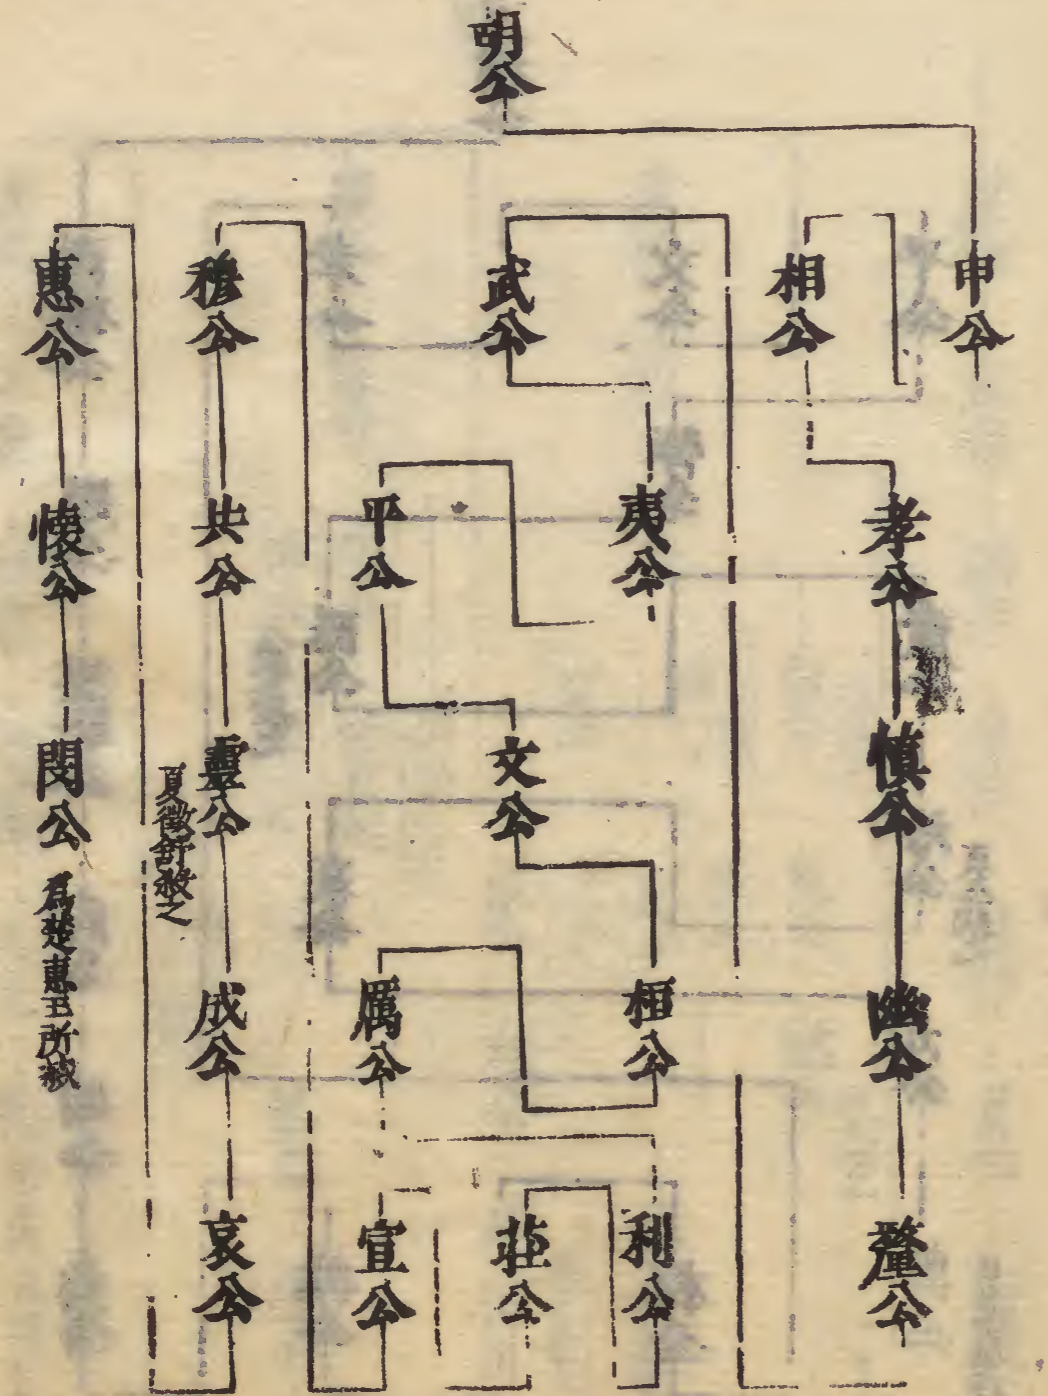 明公
申公
相公
孝公
慎公
幽公
釐公
武公
夷公
平公
文公
桓公
厲公
利公
莊公
宣公
穆公
共公
靈公
夏徵舒殺之
成公
哀公
惠公
懐公
閔公
為楚惠王所殺